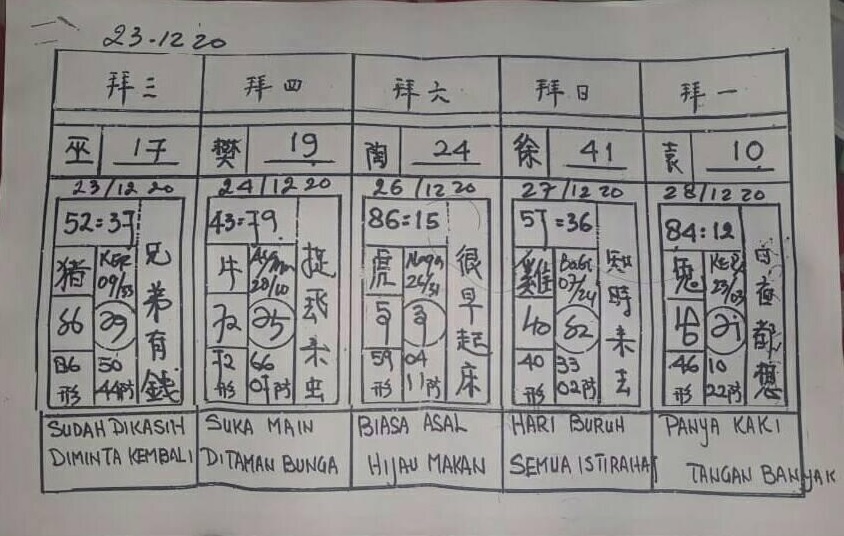 23.12 20
拜三 拜四 拜六 拜日 拜一
巫 17 樊 19 陶 24 徐 41 袁 10
23/12 20 24/12 20 26/12 20 27/12 20 28/12 20
52=37
猪
KER
09/33
66
29
50
形 44防
兄弟有錢
43=79
牛
28/10
72
25
72 66
形 07防
捉
虫
86=15
虎
Naga
26/31
59
04
形 11防
很早起床
57=36
雞
BaGi
07/24
40
62
40 33
形 02防
知時来去
84:12
兔
KER
23/03
46
21
46 10
形 22防
日夜都想
SUDAH DIKASIH
DIMINTA KEMBALI
SUKA MAIN
DITAMAN BUNGA
BIASA ASAL
HIJAU MAKAN
HARI BURUH
SEMUA ISTIRAHAT
PANYA KAKI
TANGAN BANYAK